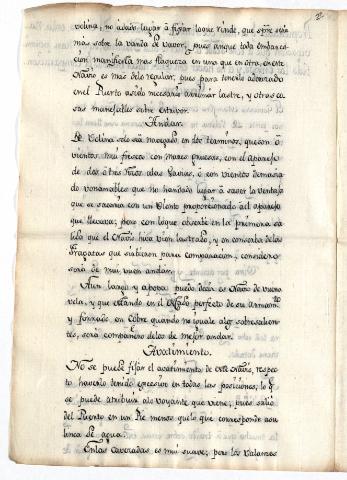 2.
volina, no ha dado lugar à fijar lo que rinde, que spre será
mas sobre la vanda de Bavor, pues aunque toda embarca-
cion manifiesta mas flaqueza en una que en otra, en este
Navio es mas de lo regular, pues para tenerlo adrizado
en el Puerto ha sido necesario arrumar lastre, y otras co-
sas manejables sobre estrivor.
Andar.
De Volina solo se há navegado en dos terminos, que son ò
vientos mui frescos con mares gruesas, con el aparejo
de dos à tres rizos alas Gavias, ò con vientos demasia-
do vonancibles que no han dado lugar à sacar la ventaja
que se sacaria con un viento proporcionado al aparejo
que llevava; pero con lo que observè en la primera sa-
lida que el Navio hiva vien lastrado, y en conserva de las
Fragatas que sirvieron para comparacion, considero
será de mui buen andar.
Aun largo y a popa puedo decir es Navio de buena
vela, y que estando en el estado perfecto de su armamto.
y forrado en cobre quando no iguale algs. sobresalien-
tes, será compañero de los de mejor andar.
Avatimiento.
No se puede fijar el avatimiento de este Navio, respec-
to haverlo tenido excesivo en todas las posiciones, lo q.
se puede atribuir alo voyante que viene; pues saliò
del Puerto en un Pie menos que lo que corresponde a su
linea de agua.
En las cavezadas es mui suave; pero los valances